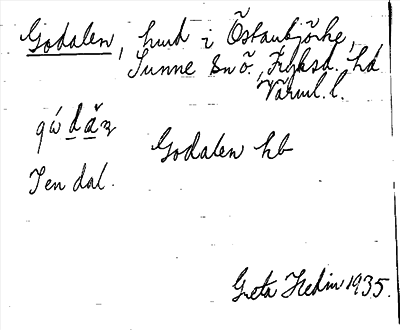 Godalen, hmd i Östanbjörke,
Sunne sn ö., Fryksd. hd
Värml. l.
Godalen hb
I en dal.
Greta Hedin 1935.